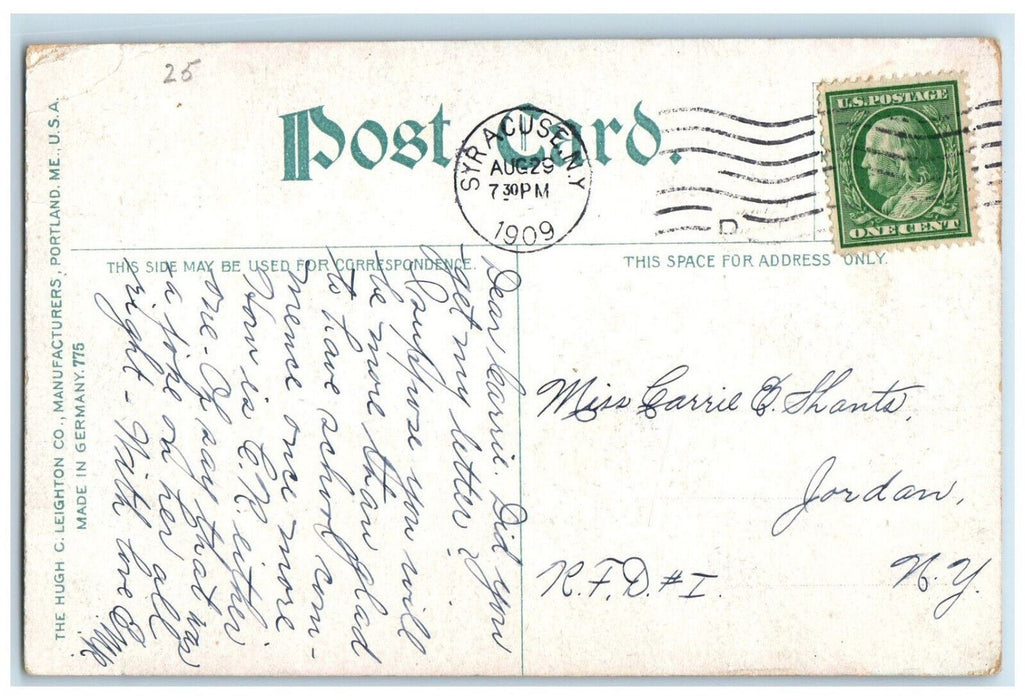 25
Post Card.
SYRACUSE, N.Y.
AUG 29
7 30 PM
1909
U.S. POSTAGE
ONE CENT
THIS SIDE MAY BE USED FOR CORRESPONDENCE.
THIS SPACE FOR ADDRESS ONLY.
THE HUGH C. LEIGHTON CO., MANUFACTURERS, PORTLAND, ME., U.S.A.
MADE IN GERMANY. 775
Dear Carrie. Did you
get my letter?
Suppose you will
be more than glad
to have school com-
mence once more
How is C.R. either
one. I say that was
a joke on her all
right - With love
Miss Carrie E. Shants,
Jordan,
N.Y.
R.F.D. # I.